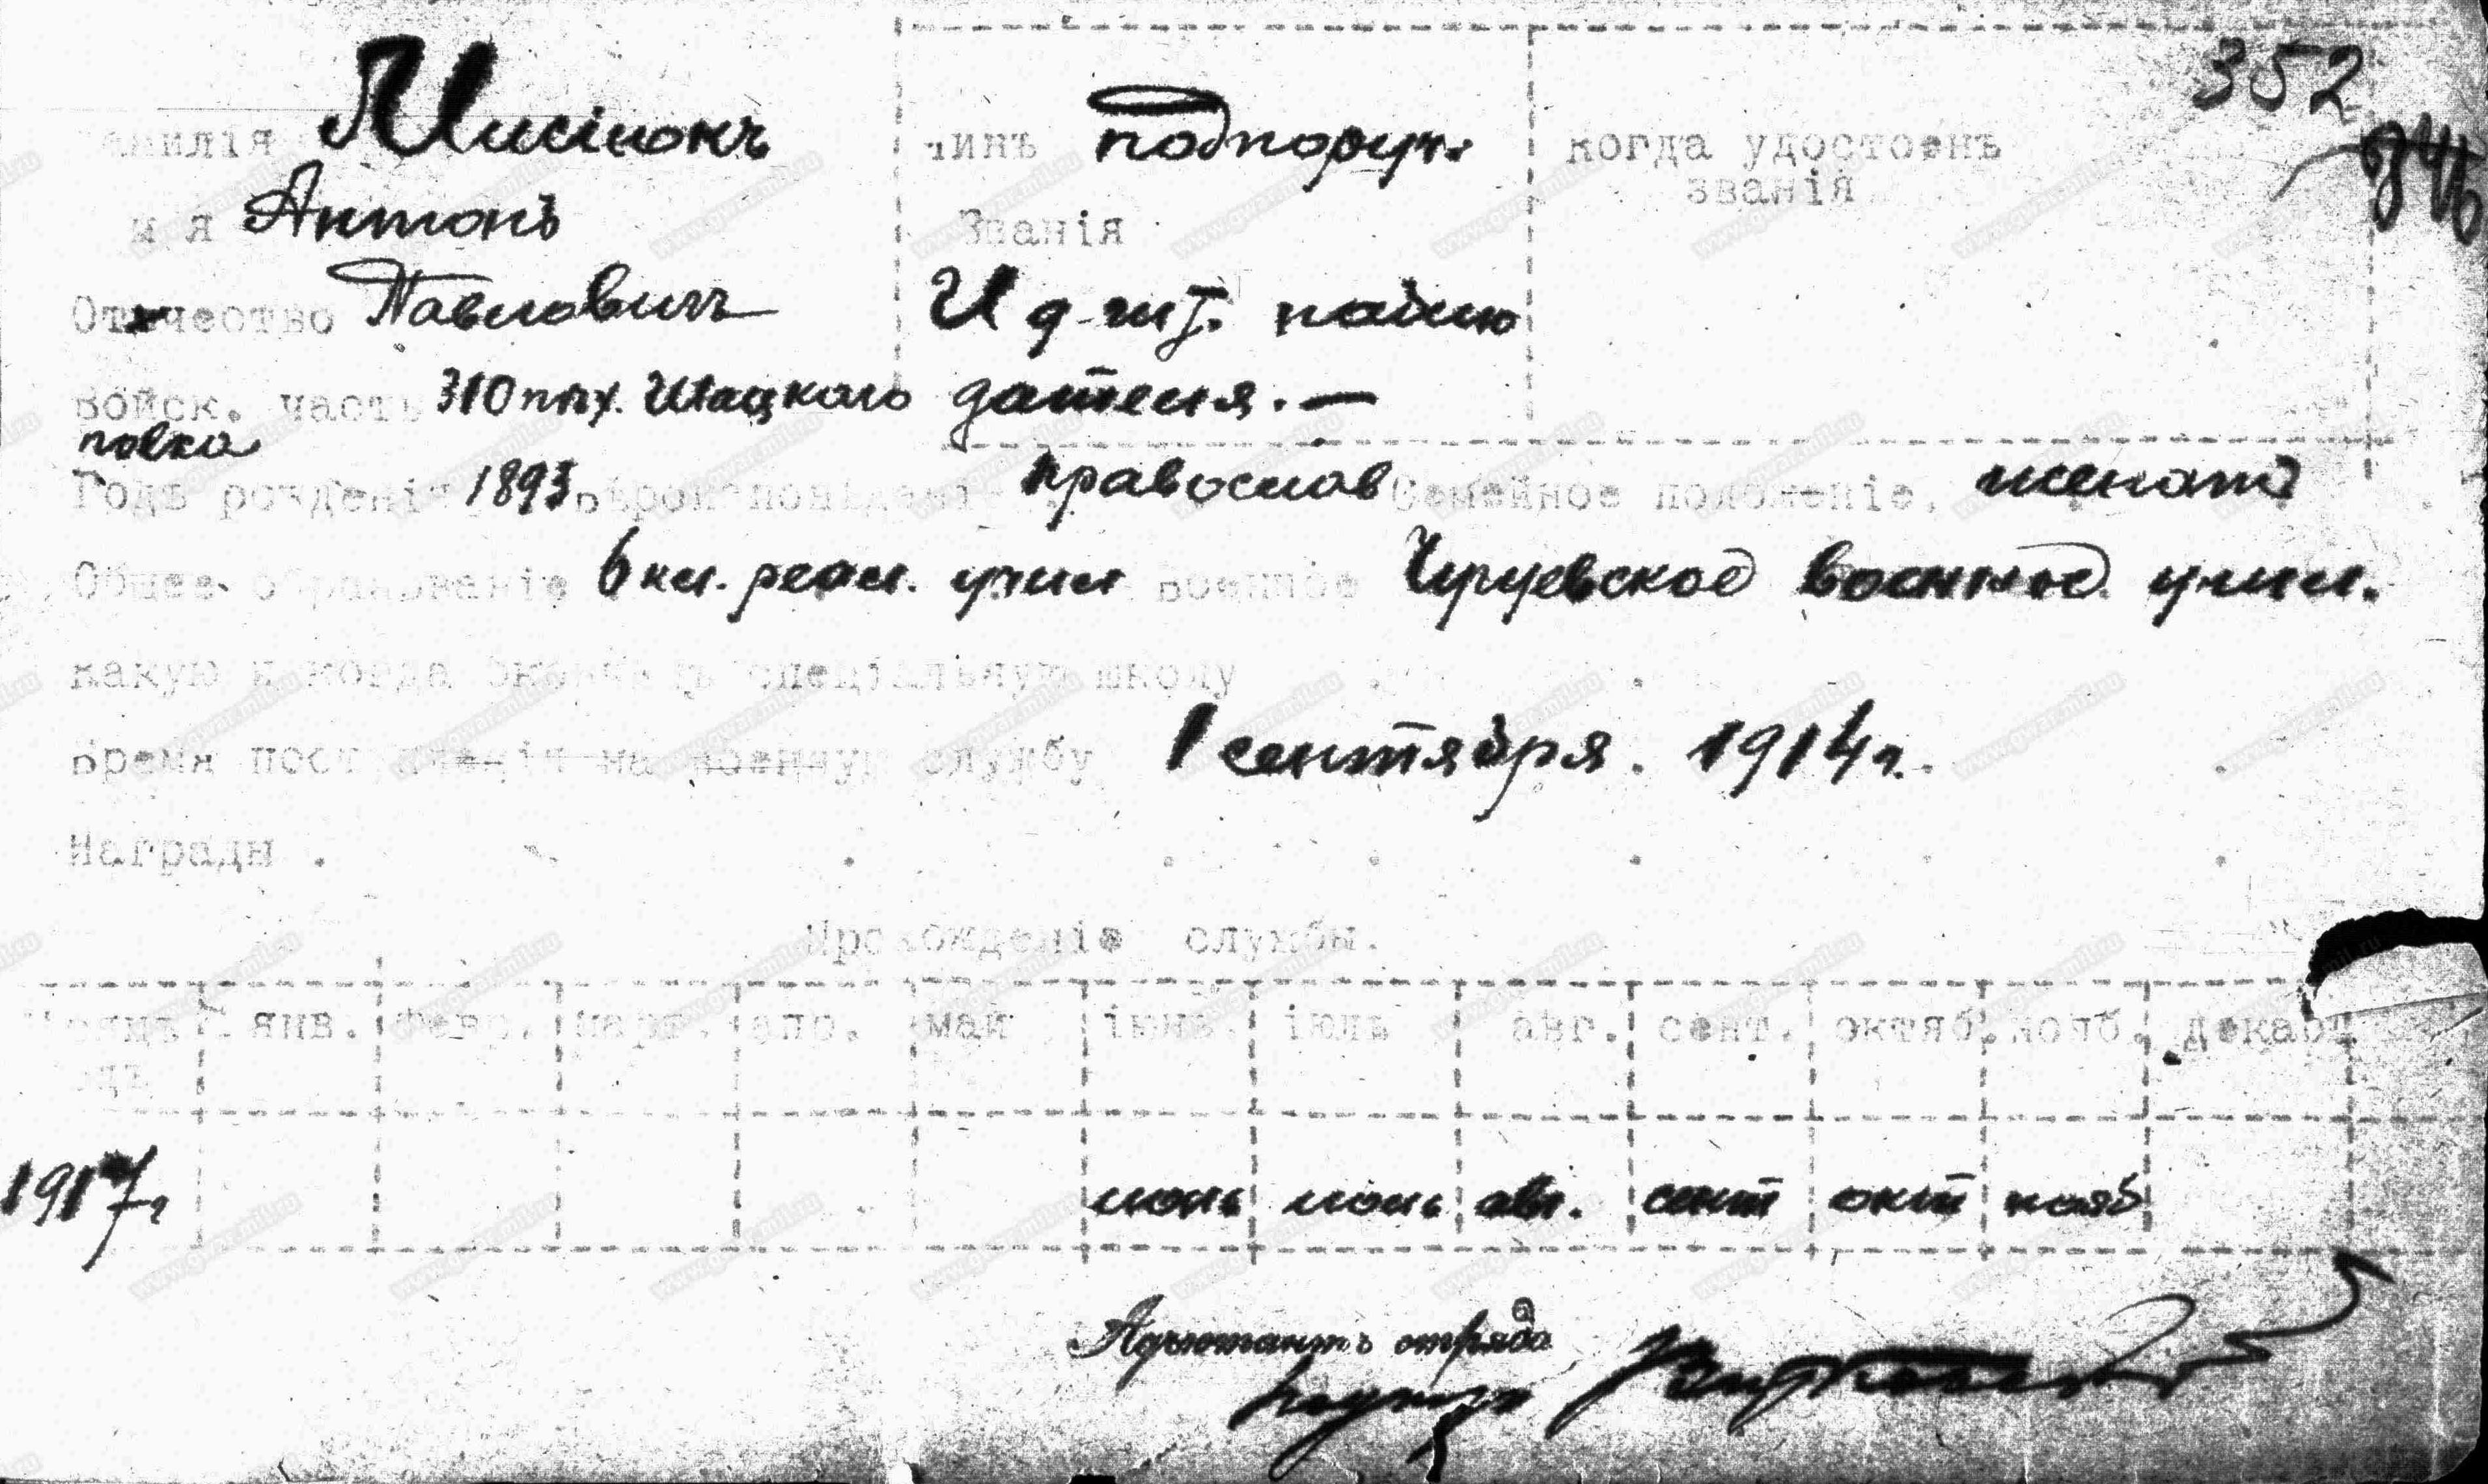 352
Фамилія Мисіюкъ чинъ подпоруч. когда удостоенъ
званія
Имя Антонъ Званія
Отчество Павловичъ И д шт. наблю
войск. часть 310 пѣх. Шацкаго дателя. —
полка
Годъ рожденія 1893 вѣроисповѣдані православ Семейное положеніе. женатъ
Общее образованіе 6 кл. реал. учил военное Чугуевское военное учил.
какую и когда окончилъ спеціальную школу
Время поступленія на военную службу 1 сентября. 1914 г.
Награды .
Прохожденіе службы.
янв. февр. март. апр. май іюнь. іюль авг. сент. октяб. нояб. декаб
1917 г июнь июль авг. сент окт нояб
Адъютантъ отряда